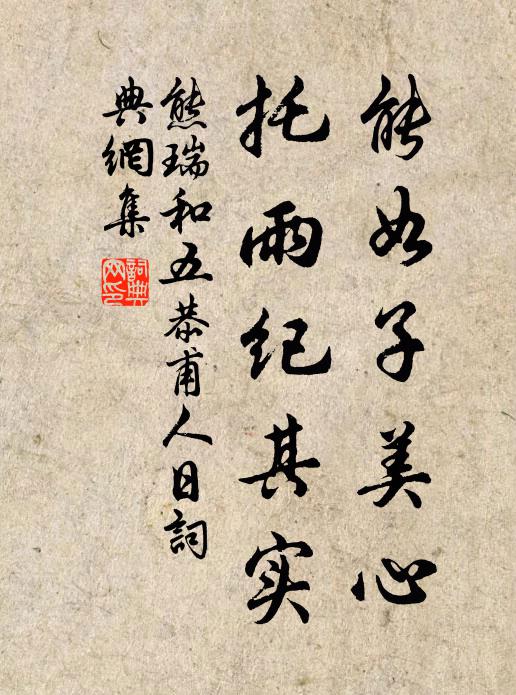 能如子美心
托雨纪其实
熊瑞和五恭甫人日詞
典網集
詞典网印